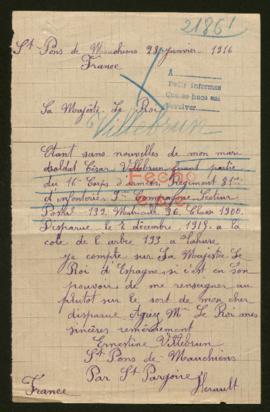 21861
St Pons de Mauchiens 28 janvier 1916
France
A
Pedir informes
Que se haga
Sa Majesté Le Roi
Villebrun
Etant sans nouvelles de mon mari
Soldat César Villebrun faisant partie
du 16e Corps d'armée Régiment 81me
d'infanterie Compagnie Secteur
Postal 132 Matricule 96 Classe 1900.
Disparue le 2 décembre 1915 a la
cote de l'arbre 193 a Tahure
je compte sur Sa Majesté Le
Roi d'Espagne si c'est en son
pouvoir de me renseigner au
plutot sur le sort de mon cher
disparue Agréz Mr Le Roi mes
sincères remerciement
Ernestine Villebrun
St Pons de Mauchiens
Par St Pargoire
France Herault